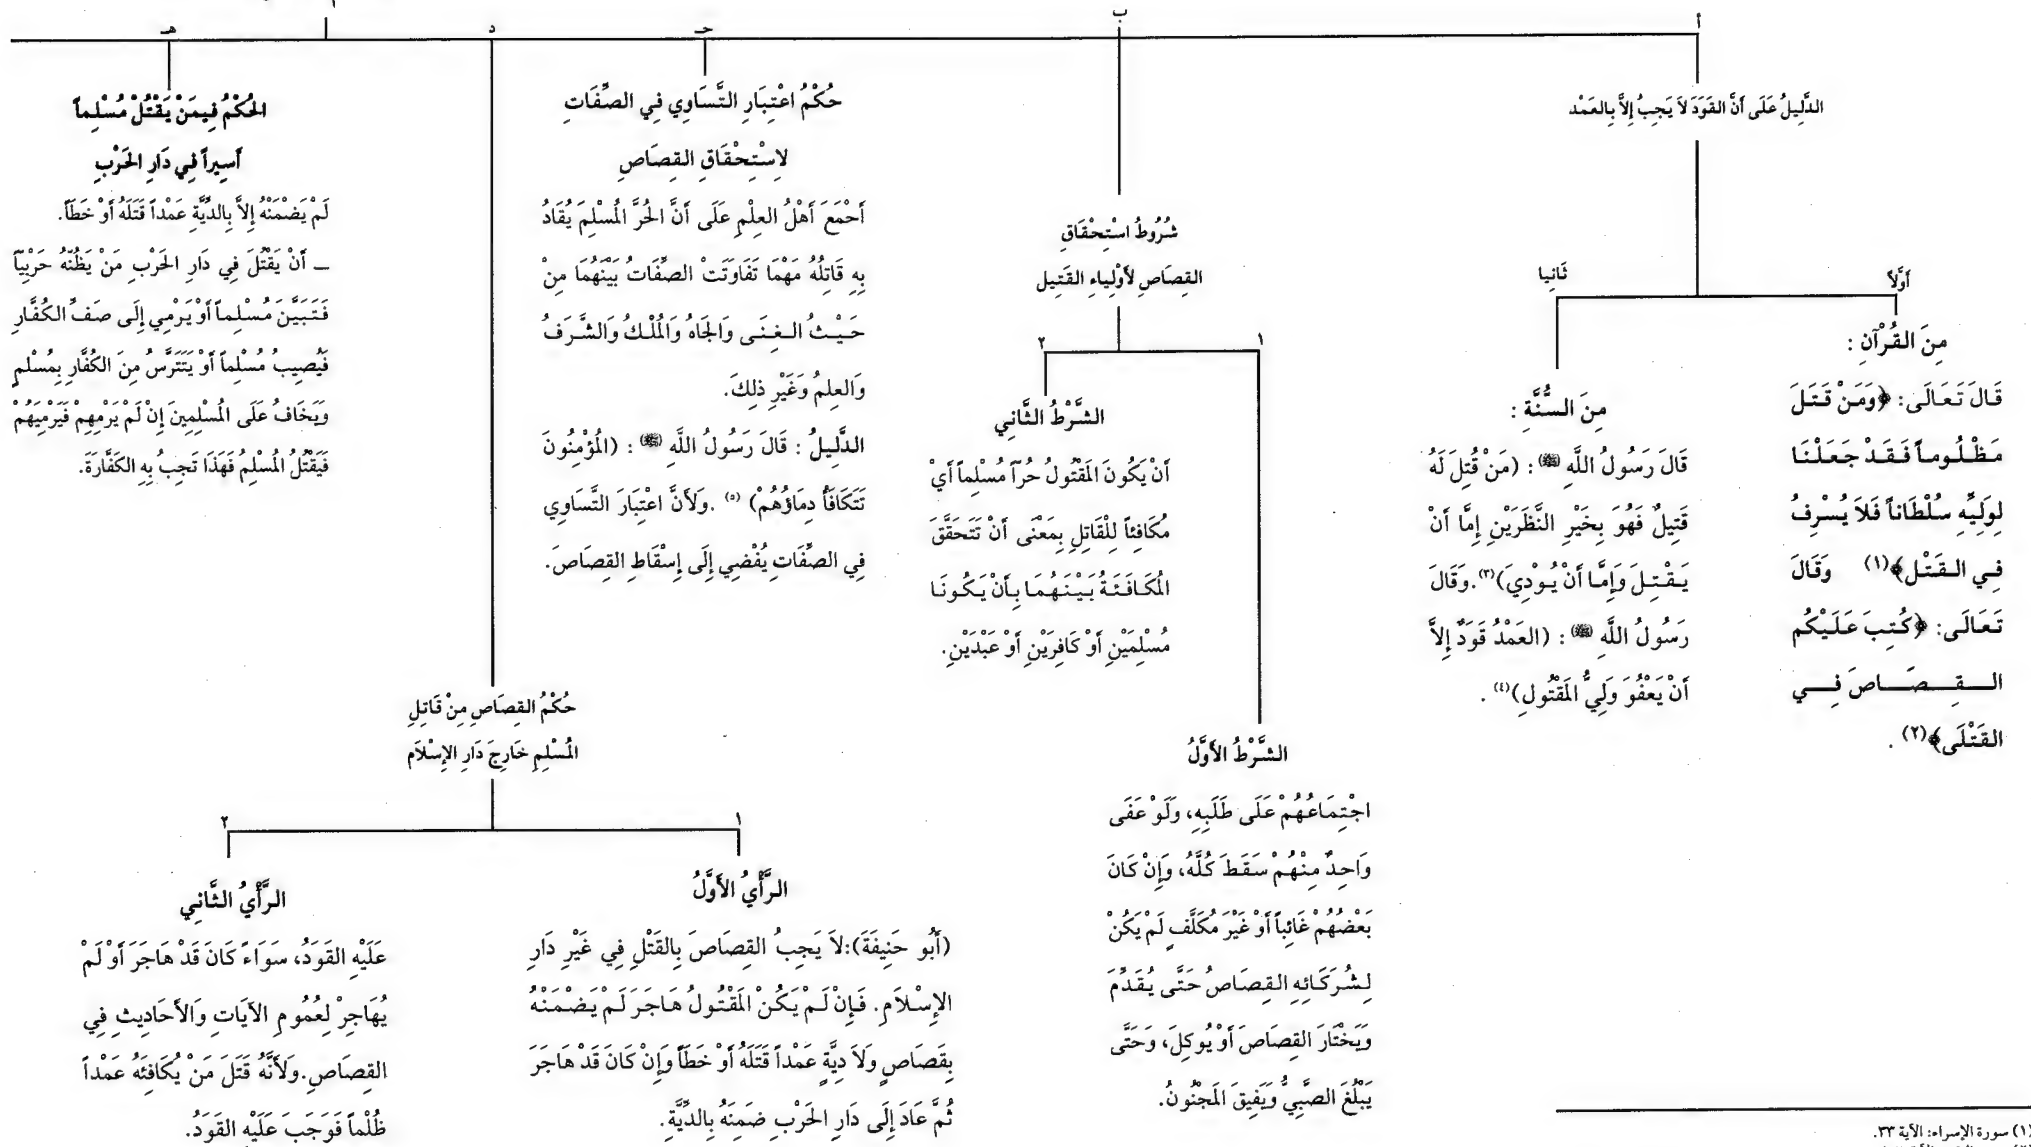 أ
الدَّلِيلُ عَلَى أَنَّ القَوَدَ لاَ يَجِبُ إِلاَّ بِالعَمْد
أَوَّلاً
مِنَ القُرْآنِ :
قَالَ تَعَالَى: ﴿وَمَنْ قَتَلَ
مَظْلُوماً فَقَدْ جَعَلْنَا
لِوَلِيِّهِ سُلْطَاناً فَلاَ يُسْرِفُ
فِي القَتْلِ﴾(١) وَقَالَ
تَعَالَى: ﴿كُتِبَ عَلَيْكُم
القِصَاصَ فِي
القَتْلَى﴾(٢) .
ثَانِيا
مِنَ السُّنَّةِ :
قَالَ رَسُولُ اللَّهِ ﷺ: (مَنْ قُتِلَ لَهُ
قَتِيلٌ فَهُوَ بِخَيْرِ النَّظَرَيْنِ إِمَّا أَنْ
يَقْتِلَ وَإِمَّا أَنْ يُوْدِيَ)(٣).وَقَالَ
رَسُولُ اللَّهِ ﷺ : (العَمْدُ قَوَدٌ إِلاَّ
أَنْ يَعْفُوَ وَلِيُّ المَقْتُولِ)(٤) .
ب
شُرُوطُ اسْتِحْقَاقِ
القِصَاصِ لأَوْلِيَاءِ القَتِيل
١
الشَّرْطُ الأَوَّلُ
اجْتِمَاعُهُمْ عَلَى طَلَبِهِ، وَلَوْ عَفَى
وَاحِدٌ مِنْهُمْ سَقَطَ كُلَّهُ، وَإِنْ كَانَ
بَعْضُهُمْ غَائِباً أَوْ غَيْرَ مُكَلَّفٍ لَمْ يَكُنْ
لِشُرَكَائِهِ القِصَاصُ حَتَّى يُقَدَّمَ
وَيَخْتَارَ القِصَاصَ أَوْ يُوكِلَ، وَحَتَّى
يَبْلُغَ الصَّبِيُّ وَيَفِيقَ المَجْنُونُ.
٢
الشَّرْطُ الثَّانِي
أَنْ يَكُونَ المَقْتُولُ حُرّاً مُسْلِماً أَيْ
مُكَافِئاً لِلْقَاتِلِ بِمَعْنَى أَنْ تَتَحَقَّقَ
المُكَافَئَةُ بَيْنَهُمَا بِأَنْ يَكُونَا
مُسْلِمَيْنِ أَوْ كَافِرَيْنِ أَوْ عَبْدَيْنِ.
حـ
حُكْمُ اعْتِبَارِ التَّسَاوِي فِي الصِّفَاتِ
لاِسْتِحْقَاقِ القِصَاصِ
أَحْمَعَ أَهْلُ العِلْمِ عَلَى أَنَّ الحُرَّ المُسْلِمَ يُقَادُ
بِهِ قَاتِلُهُ مَهْمَا تَفَاوَتَتْ الصِّفَاتُ بَيْنَهُمَا مِنْ
حَيْثُ الغِنَى وَالجَاهُ وَالمُلْكُ وَالشَّرَفُ
وَالعِلمُ وَغَيْرِ ذلِكَ.
الدَّلِيلُ : قَالَ رَسُولُ اللَّهِ ﷺ : (المُؤْمِنُونَ
تَتَكَافَأُ دِمَاؤُهُمْ) (٥) .وَلأَنَّ اعْتِبَارَ التَّسَاوِي
فِي الصِّفَاتِ يُفْضِي إِلَى إِسْقَاطِ القِصَاصَ.
د
حُكْمُ القِصَاصِ مِنْ قَاتِلِ
المُسْلِمِ خَارِجَ دَارِ الإِسْلاَمِ
١
الرَّأْيُ الأَوَّلُ
(أَبُو حَنِيفَةَ):لاَ يَجِبُ القِصَاصَ بِالقَتْلِ فِي غَيْرِ دَارِ
الإِسْلاَمِ. فَإِنْ لَمْ يَكُنْ المَقْتُولُ هَاجَرَ لَمْ يَضْمَنْهُ
بِقَصَاصٍ وَلاَ دِيَّةٍ عَمْداً قَتَلَهُ أَوْ خَطَأً وَإِن كَانَ قَدْ هَاجَرَ
ثُمَّ عَادَ إِلَى دَارِ الحَرْبِ ضَمِنَهُ بِالدِّيَّةِ.
٢
الرَّأْيُ الثَّانِي
عَلَيْهِ القَوَدُ، سَوَاءً كَانَ قَدْ هَاجَرَ أَوْ لَمْ
يُهَاجِرْ لِعُمُومِ الآيَاتِ وَالأَحَادِيثِ فِي
القِصَاصِ.وَلأَنَّهُ قَتَلَ مَنْ يُكَافِئَهُ عَمْداً
ظُلْماً فَوَجَبَ عَلَيْهِ القَوَدُ.
هـ
الحُكْمُ فِيمَنْ يَقْتُلْ مُسْلِماً
أَسِيراً فِي دَارِ الحَرْبِ
لَمْ يَضْمَنْهُ إِلاَّ بِالدِّيَّةِ عَمْداً قَتَلَهُ أَوْ خَطَأً.
ــ أَنْ يَقْتُلَ فِي دَارِ الحَرْبِ مَنْ يَظُنّهُ حَرْبِيّاً
فَتَبَيَّنَ مُسْلِماً أَوْ يَرْمِي إِلَى صَفِّ الكُفَّارِ
فَيُصِيبُ مُسْلِماً أَوْ يَتَتَرَّسُ مِنَ الكُفَّارِ بِمُسْلِمٍ
وَيَخَافُ عَلَى المُسْلِمِينَ إِنْ لَمْ يَرْمِهِمْ فَيَرْمِيَهُمْ
فَيَقْتُلُ المُسْلِمُ فَهَذَا تَجِبُ بِهِ الكَفَّارَةَ.
(١) سورة الإسراء: الآية ٣٣.